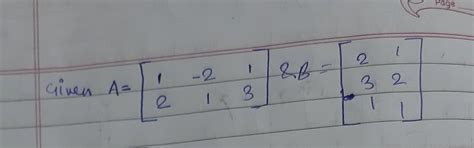 Page
Given A = [ 1 -2 1 ] & B = [ 2 1 ]
[ 2 1 3 ] [ 3 2 ]
[ 1 1 ]